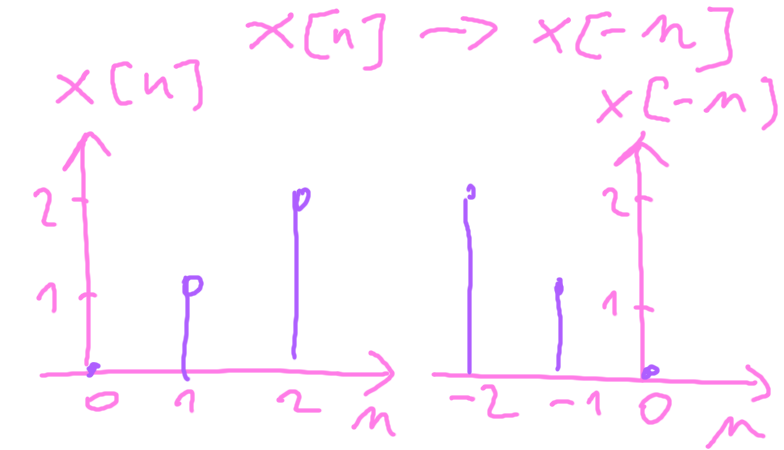 x[n] → x[-n]
x[n]
x[-n]
2
1
0 1 2 n
2
1
-2 -1 0 n